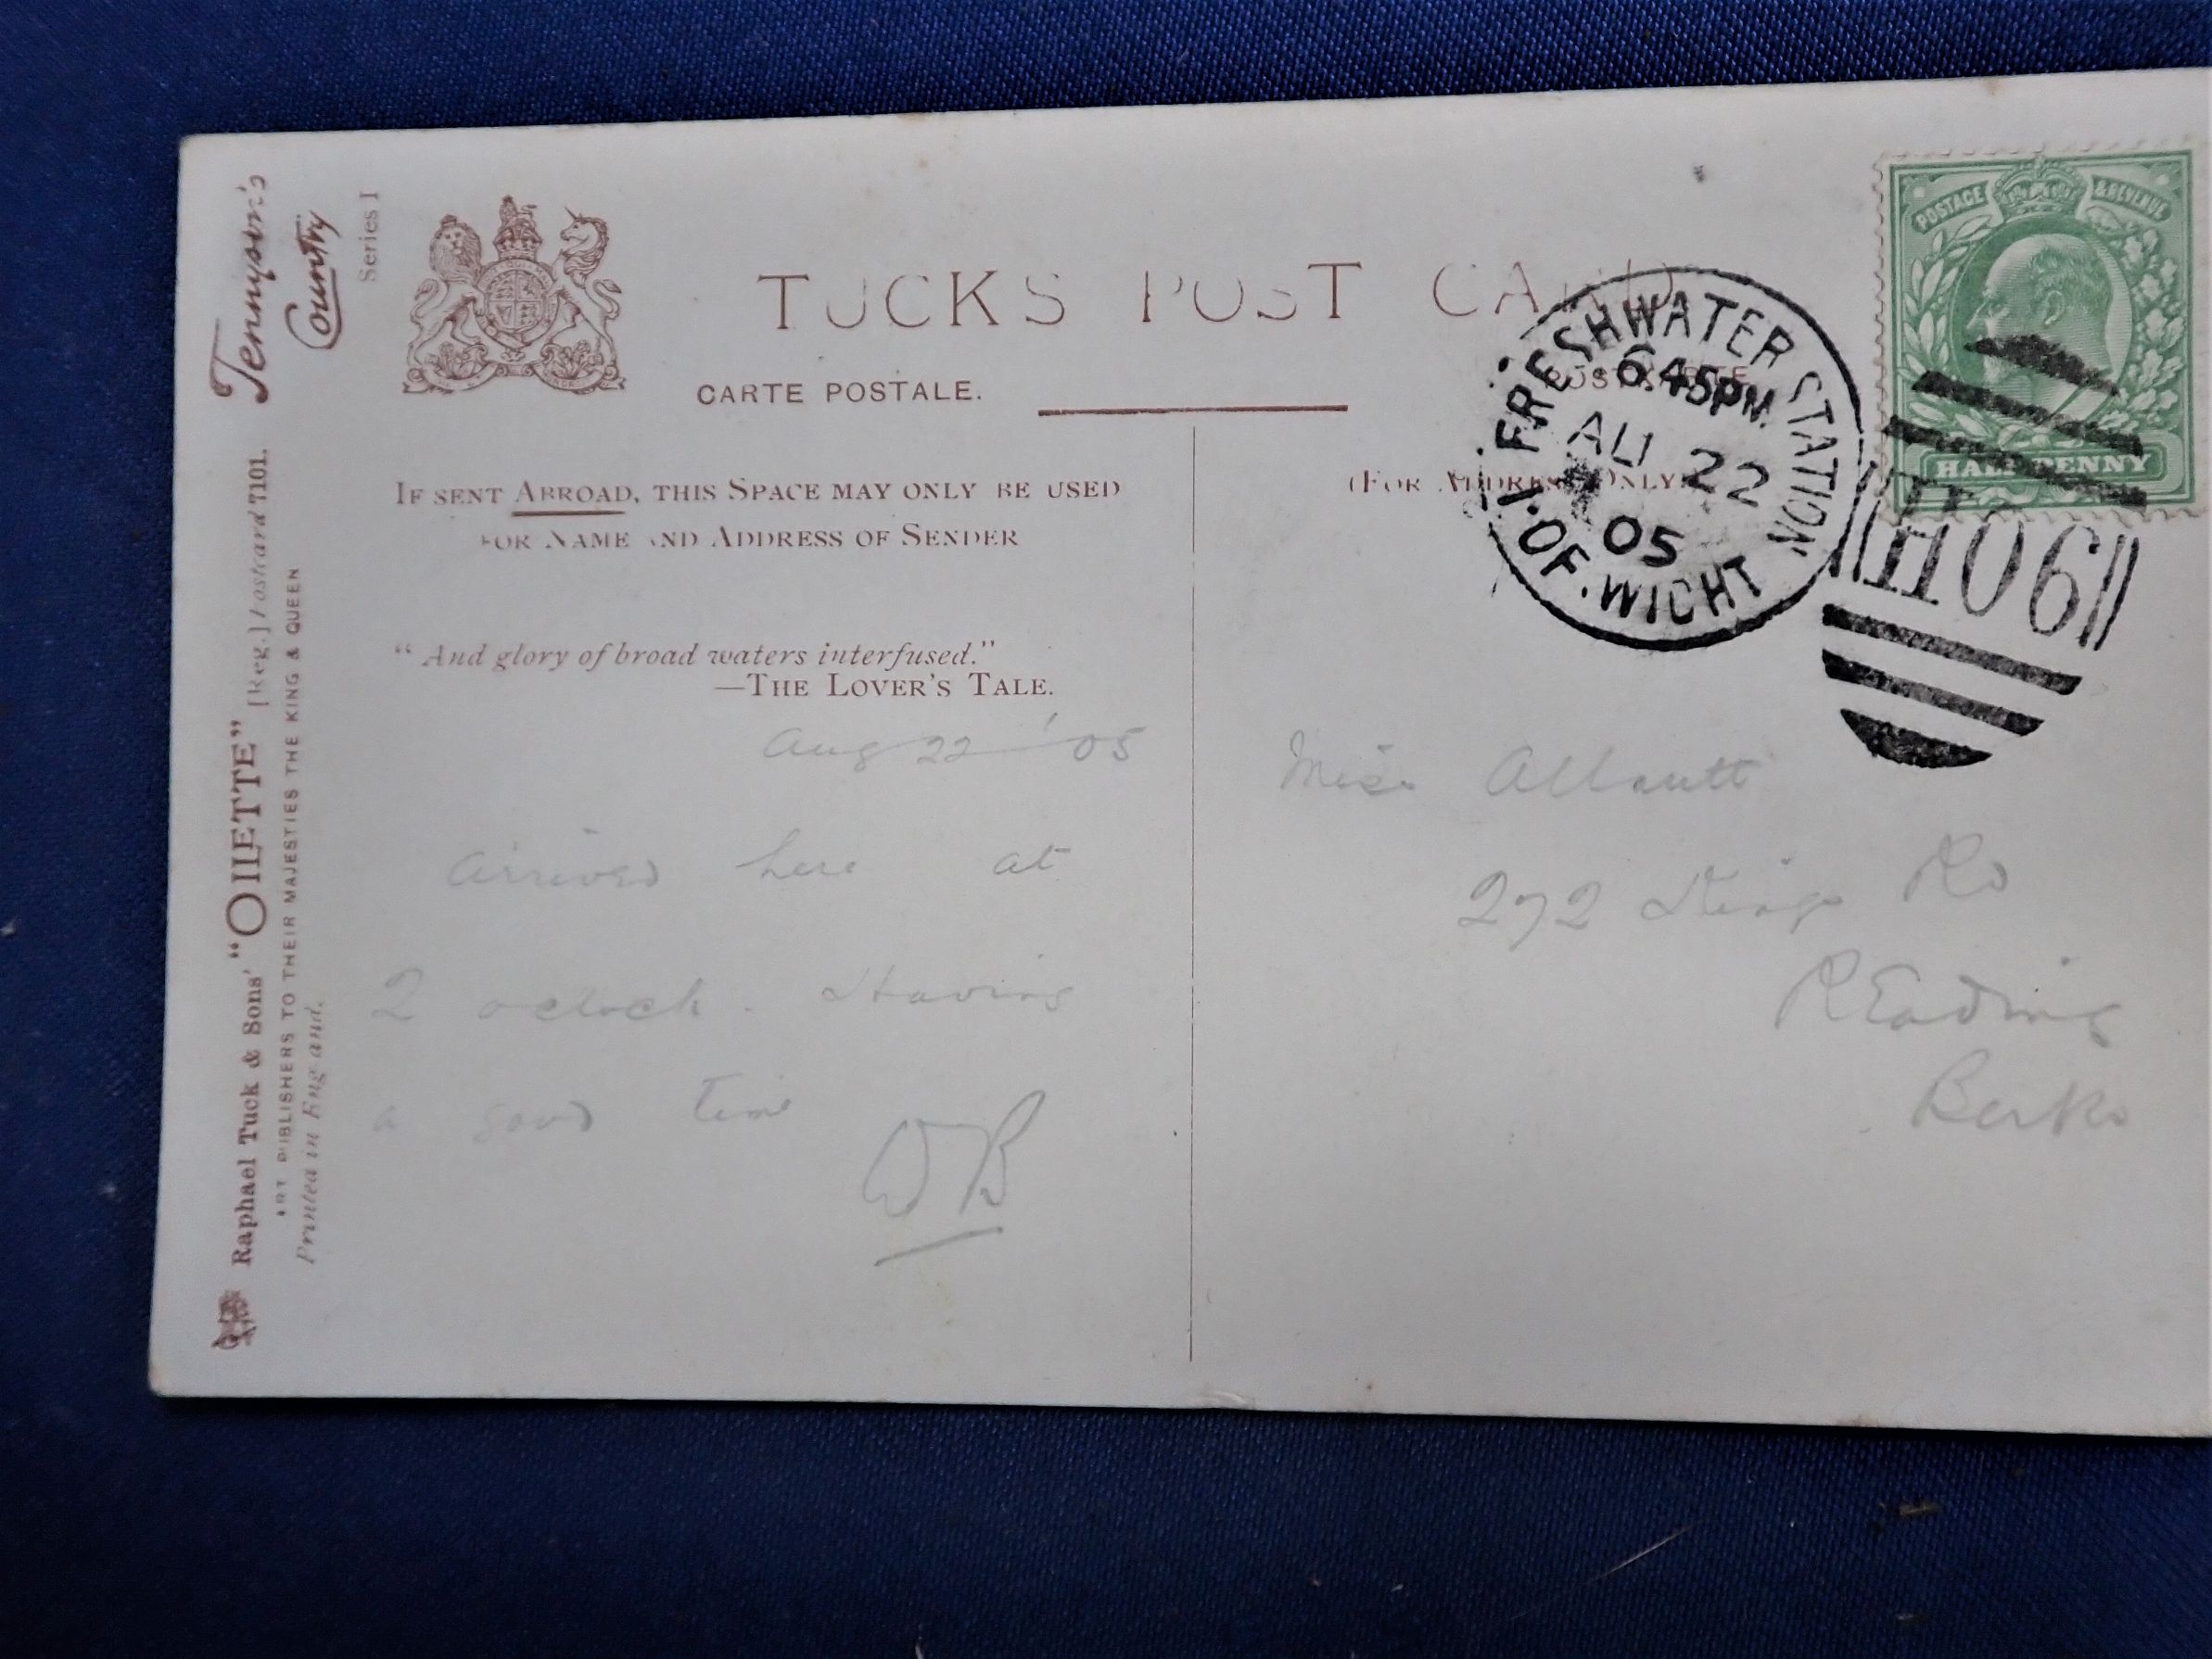 Tennyson's
Country
Series I
Raphael Tuck & Sons' "OILETTE" [Reg.] Postcard 7101.
ART PUBLISHERS TO THEIR MAJESTIES THE KING & QUEEN
Printed in England.
TUCK'S POST CARD
CARTE POSTALE.
POSTKARTE
IF SENT ABROAD, THIS SPACE MAY ONLY BE USED
FOR NAME AND ADDRESS OF SENDER
(FOR ADDRESS ONLY)
"And glory of broad waters interfused."
—THE LOVER'S TALE.
Aug 22 '05
arrived here at
2 oclock. Having
a good time
WB
POSTAGE & REVENUE
HALFPENNY
FRESHWATER STATION
6.45PM
AU 22
05
I. OF. WIGHT
H06
Miss Allnutt
272 Kings Rd
REading
Berks